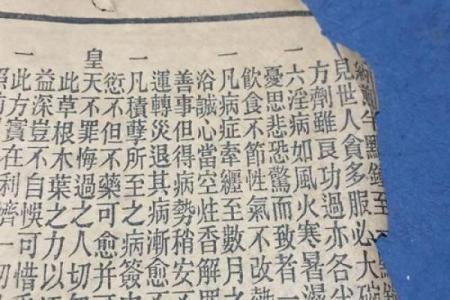 點鐘至
見世人貪多服必大碗
方劑雖良功過亦各
一六淫病如風火寒暑濕
憂思悲恐驚而致者
飲食不節性氣不改
一凡病症牽纏至數月之
浴誠心當空炷香解
善事但得病勢稍安
運轉災退其病漸愈
一凡積孽所至之病簽中
愆不但不藥可愈並可
皇天不罪悔過之人切
此草根木葉之力以
益深豈不自悞可惜
一照前方實在利濟一切